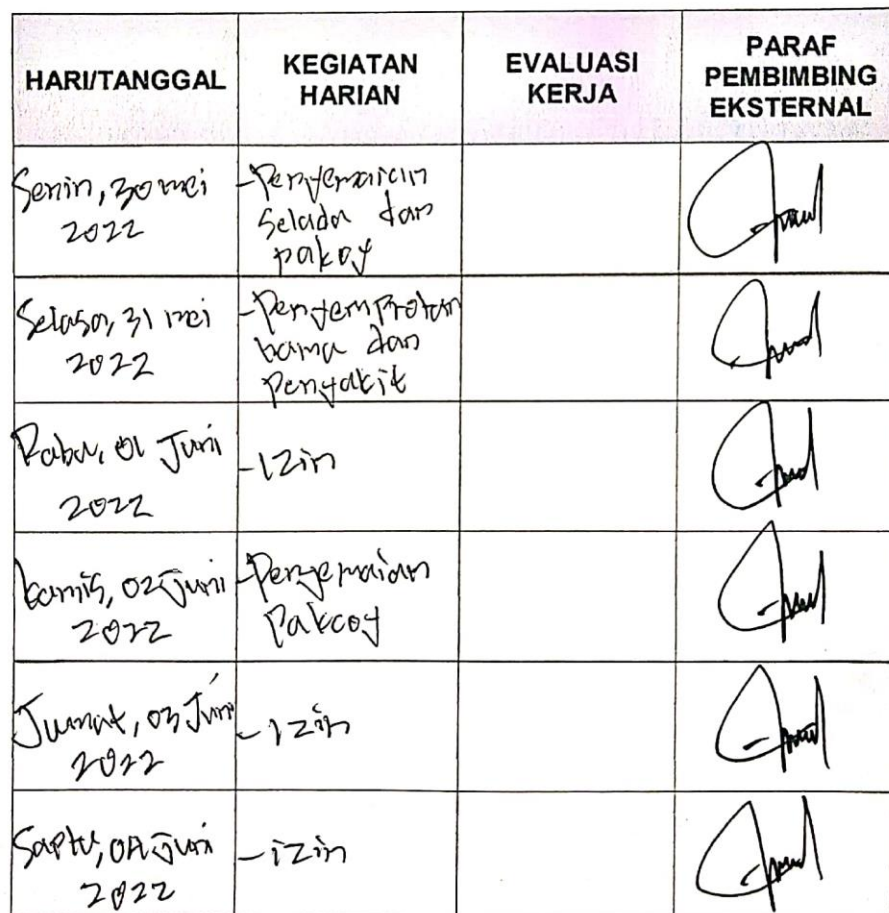 HARI/TANGGAL
KEGIATAN
HARIAN
EVALUASI
KERJA
PARAF
PEMBIMBING
EKSTERNAL
Senin, 30 mei
2022
-Penyemaian
Selada dan
pakoy
Selasa, 31 mei
2022
-Penyemprotan
hama dan
Penyakit
Rabu, 01 Juni
2022
-Izin
kamis, 02 Juni
2022
-Penyemaian
Pakcoy
Jumat, 03 Juni
2022
-Izin
Saptu, 04 Juni
2022
-izin